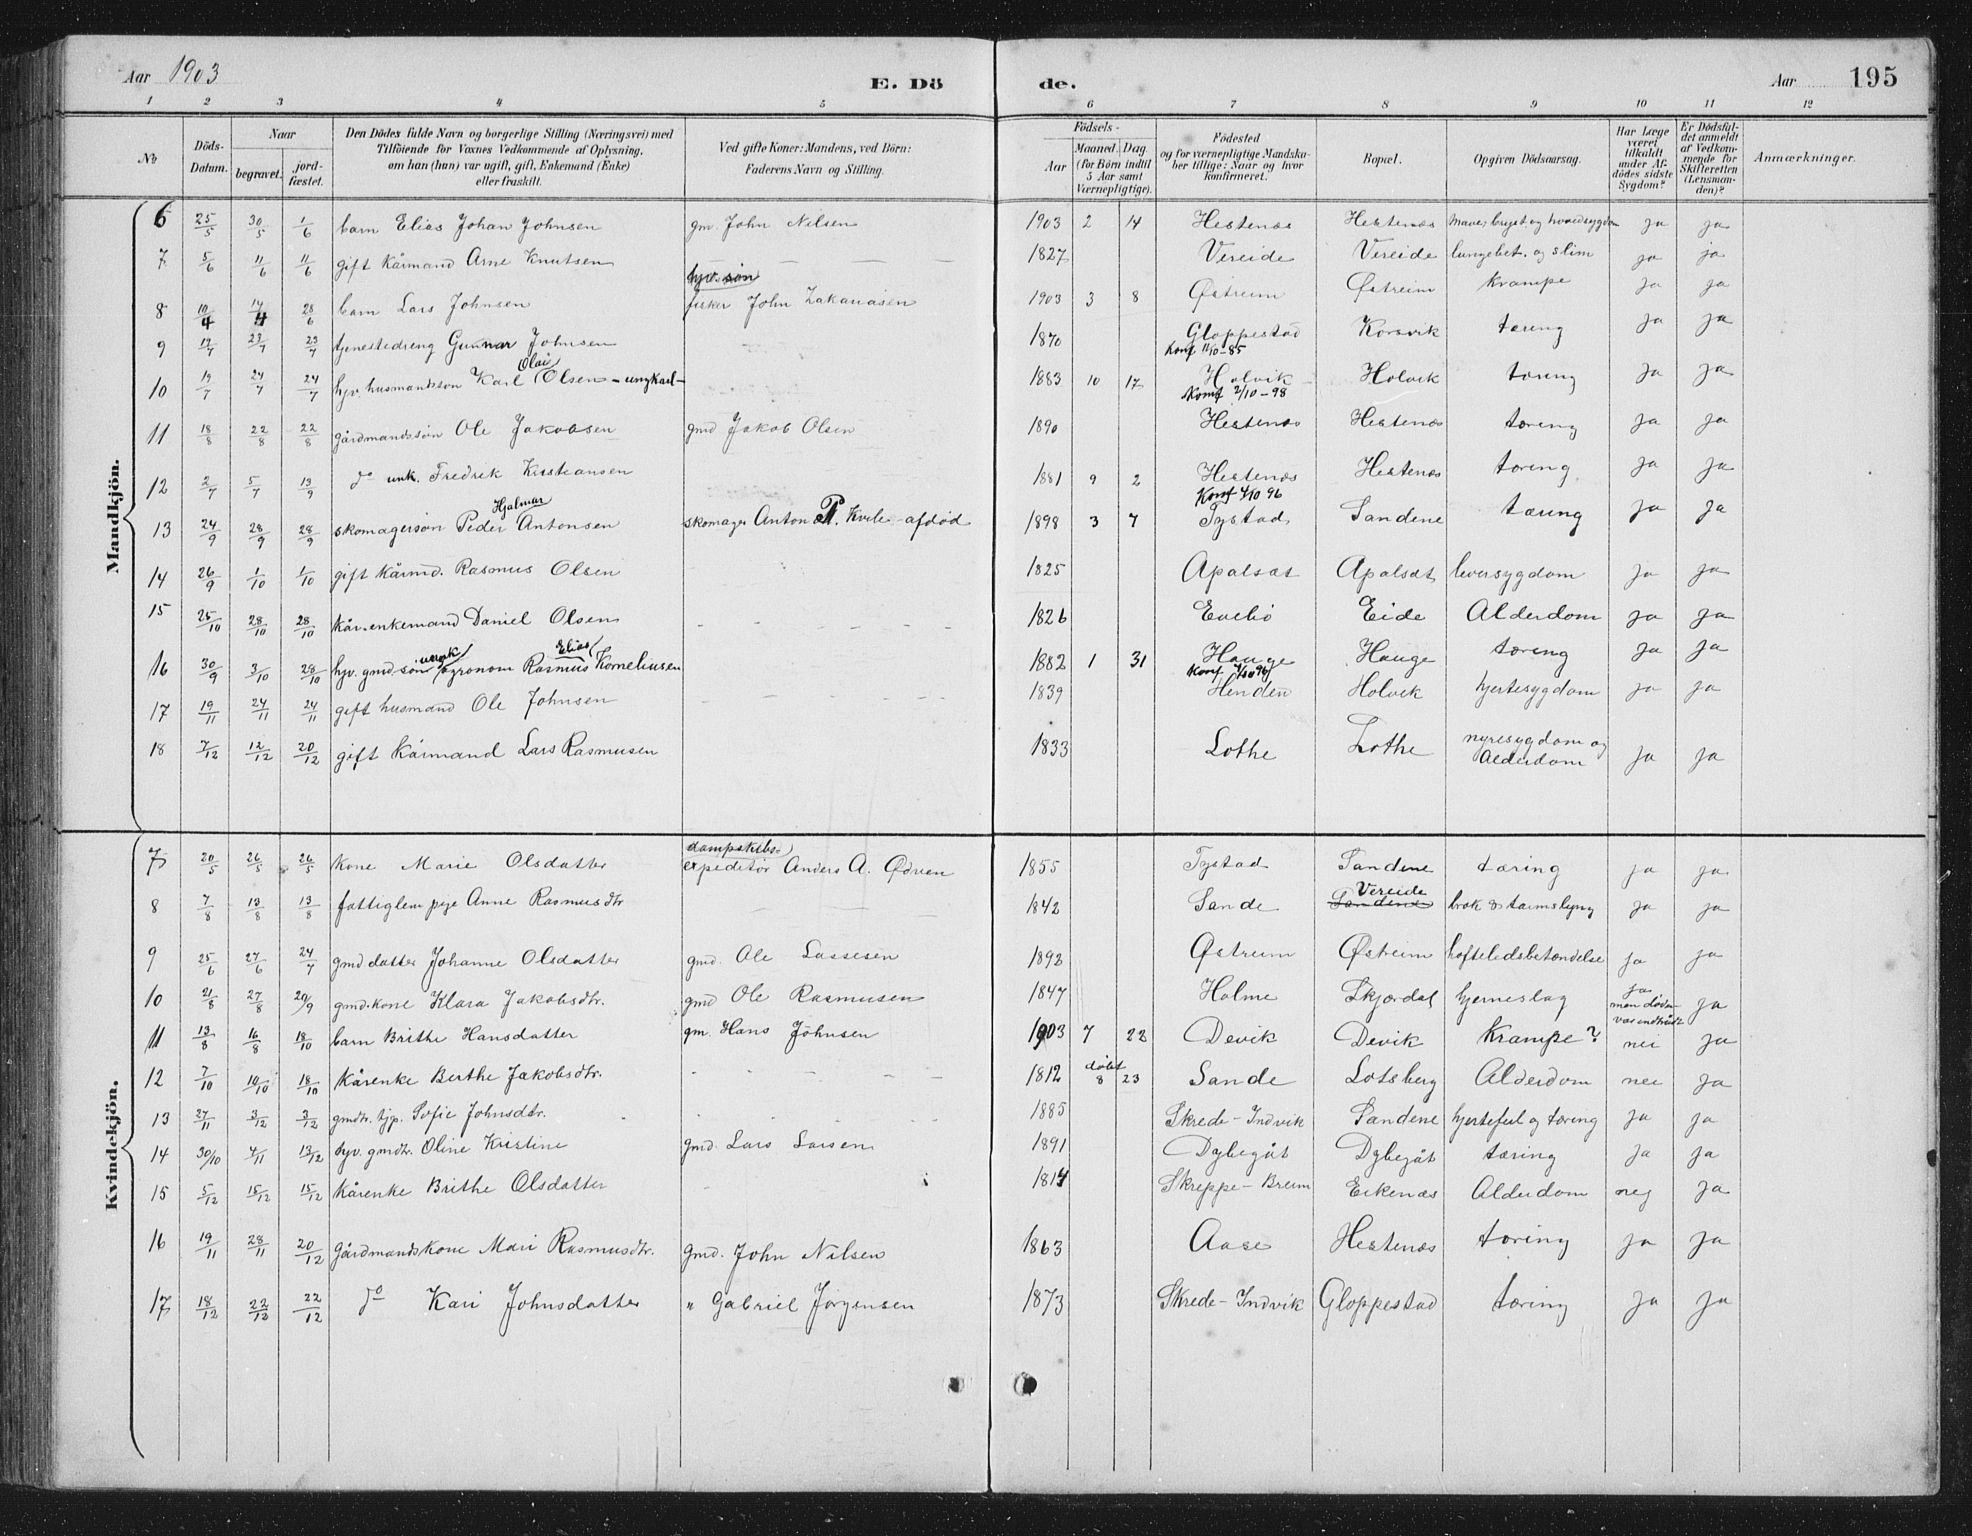 Aar 1903 E. Döde. Aar 195
1 2 3 4 5 6 7 8 9 10 11 12
No Döds-Datum. Naar begravet. jordfæstet. Den Dödes fulde Navn og borgerlige Stilling (Næringsvei) med Tilföiende for Voxnes Vedkommende af Oplysning, om han (hun) var ugift, gift, Enkemand (Enke) eller fraskilt. Ved gifte Koner: Mandens, ved Börn: Faderens Navn og Stilling. Födsels- Aar Maaned. Dag. (for Börn indtil 5 Aar samt Værnepligtige). Födested og for værnepligtige Mandskaber tillige: Naar og hvor konfirmeret. Bopæl. Opgiven Dödsaarsag. Har Læge været tilkaldt under Afdödes sidste Sygdom? Er Dödsfaldet anmeldt af Vedkommende for Skifteretten (Lensmanden)? Anmærkninger.
Mandkjön.
6 25/5 30/5 1/6 barn Elias Johan Johnsen gm. John Nilsen 1903 2 14 Hestenæs Hestenæs ja ja
7 5/6 11/6 11/6 gift kårmand Arne Knutsen 1827 Vereide Vereide lungebet. og slim ja ja
8 10/4 14/4 28/6 barn Lars Johnsen hjv. søn fisker John Zakariasen 1903 3 8 Østreim Østreim krampe ja ja
9 19/7 23/7 23/7 tjenestedreng Gunnar Johnsen 1870 Gloppestad Konf 11/10-85 Korsvik tæring ja ja
10 19/7 24/7 24/7 hjv. husmandssøn Karl Olai Olsen - ungkarl - 1883 10 17 Holvik Konf 2/10-98 Holvik tæring ja ja
11 18/8 22/8 22/8 gårdmandssøn Ole Jakobsen gmd Jakob Olsen 1890 Hestenæs Hestenæs tæring ja ja
12 2/7 5/7 13/9 do unk. Fredrik Kristiansen 1881 9 2 Hestenæs Konf 4/10 96 Hestenæs tæring ja ja
13 24/9 28/9 28/9 skomagersøn Peder Hjalmar Antonsen skomager Anton P. Kvile - afdød 1898 3 7 Tystad Sandene tæring ja ja
14 26/9 1/10 1/10 gift kårmd. Rasmus Olsen 1825 Apalsæt Apalsæt leversygdom ja ja
15 25/10 28/10 28/10 kår-enkemand Daniel Olsen 1826 Evebø Eide Alderdom ja ja
16 30/9 3/10 28/10 hjv. gmd-søn ungk agronom Rasmus Elias Korneliusen 1882 1 31 Hauge Konf 4/10 96 Hauge tæring ja ja
17 19/11 24/11 24/11 gift husmand Ole Johnsen 1839 Henden Holvik hjertesygdom ja ja
18 7/12 12/12 20/12 gift kårmand Lars Rasmusen 1833 Lothe Lothe nyresygdom og Alderdom ja ja
Kvindekjön.
7 20/5 26/5 26/5 kone Marie Olsdatter dampskibs-expeditør Anders A. Ødven 1855 Tystad Sandene tæring ja ja
8 7/8 13/8 13/8 fattiglem pige Anne Rasmusdtr 1842 Sande Sandene Vereide brok & tarmslyng ja ja
9 25/6 27/6 24/7 gmd datter Johanne Olsdatter gmd. Ole Lassesen 1892 Østreim Østreim hofteledsbetændelse ja ja
10 21/8 27/8 20/9 gmd.kone Klara Jakobsdtr. gmd Ole Rasmusen 1847 Holme Skjørdal hjerneslag ja men døden var indtrådt ja
11 13/8 16/8 18/10 barn Brithe Hansdatter gm. Hans Johnsen 1903 7 22 Devik Devik Krampe? nei ja
12 7/10 10/10 18/10 kårenke Berthe Jakobsdtr. 1812 døbt 8 23 Sande Lotsberg Alderdom nei ja
13 27/11 3/12 3/12 gmdtr. tjp. Sofie Johnsdtr. 1885 Skrede - Indvik Sandene hjertefeil og tæring ja ja
14 30/10 4/11 13/12 hjv. gmdtr. Oline Kristine gmd. Lars Larsen 1891 Dybegåt Dybegåt tæring ja ja
15 5/12 15/12 15/12 kårenke Brithe Olsdatter 1814 Skreppe - Breim Eikenæs Alderdom nej ja
16 19/11 28/11 20/12 gårdmandskone Mari Rasmusdtr. gmd. John Nilsen 1863 Aase Hestenæs tæring ja ja
17 18/12 22/12 22/12 do Kari Johnsdatter " Gabriel Jørgensen 1873 Skrede - Indvik Gloppestad tæring ja ja